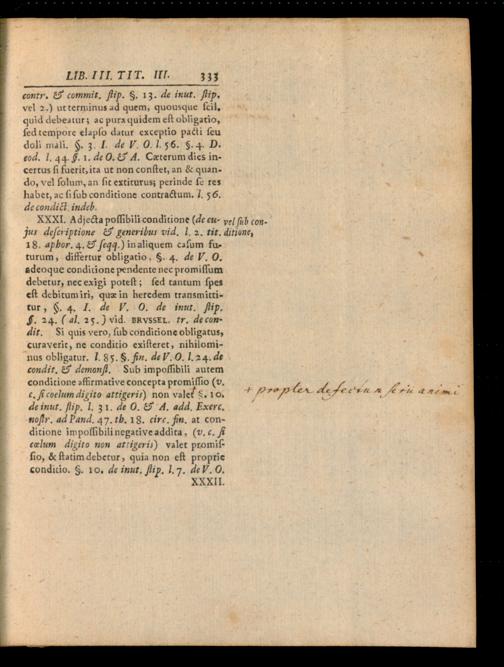 LIB. III. TIT. III. 333
contr. & commit. stip. §. 13. de inut. stip.
vel 2.) ut terminus ad quem, quousque scil.
quid debeatur; ac pura quidem est obligatio,
sed tempore elapso datur exceptio pacti seu
doli mali. §. 3. I. de V. O. l. 56. §. 4. D.
eod. l. 44. §. 1. de O. & A. Cæterum dies in-
certus si fuerit, ita ut non constet, an & quan-
do, vel solum, an sit extiturus; perinde se res
habet, ac si sub conditione contractum. l. 56.
de condict. indeb.
XXXI. Adjecta possibili conditione (de cu-
jus descriptione & generibus vid. l. 2. tit.
18. aphor. 4. & seqq.) in aliquem casum fu-
turum, differtur obligatio, §. 4. de V. O.
adeoque conditione pendente nec promissum
debetur, nec exigi potest; sed tantum spes
est debitum iri, quæ in heredem transmitti-
tur, §. 4. I. de V. O. de inut. stip.
§. 24. (al. 25.) vid. BRVSSEL. tr. de con-
dit. Si quis vero, sub conditione obligatus,
curaverit, ne conditio existeret, nihilomi-
nus obligatur. l. 85. §. fin. de V. O. l. 24. de
condit. & demonst. Sub impossibili autem
conditione affirmative concepta promissio (v.
c. si coelum digito attigeris) non valet + §. 10.
de inut. stip. l. 31. de O. & A. add. Exerc.
nostr. ad Pand. 47. th. 18. circ. fin. at con-
ditione impossibili negative addita, (v. c. si
cœlum digito non attigeris) valet promis-
sio, & statim debetur, quia non est proprie
conditio. §. 10. de inut. stip. l. 7. de V. O.
XXXII.
vel sub con-
ditione,
+ propter defectum serii animi